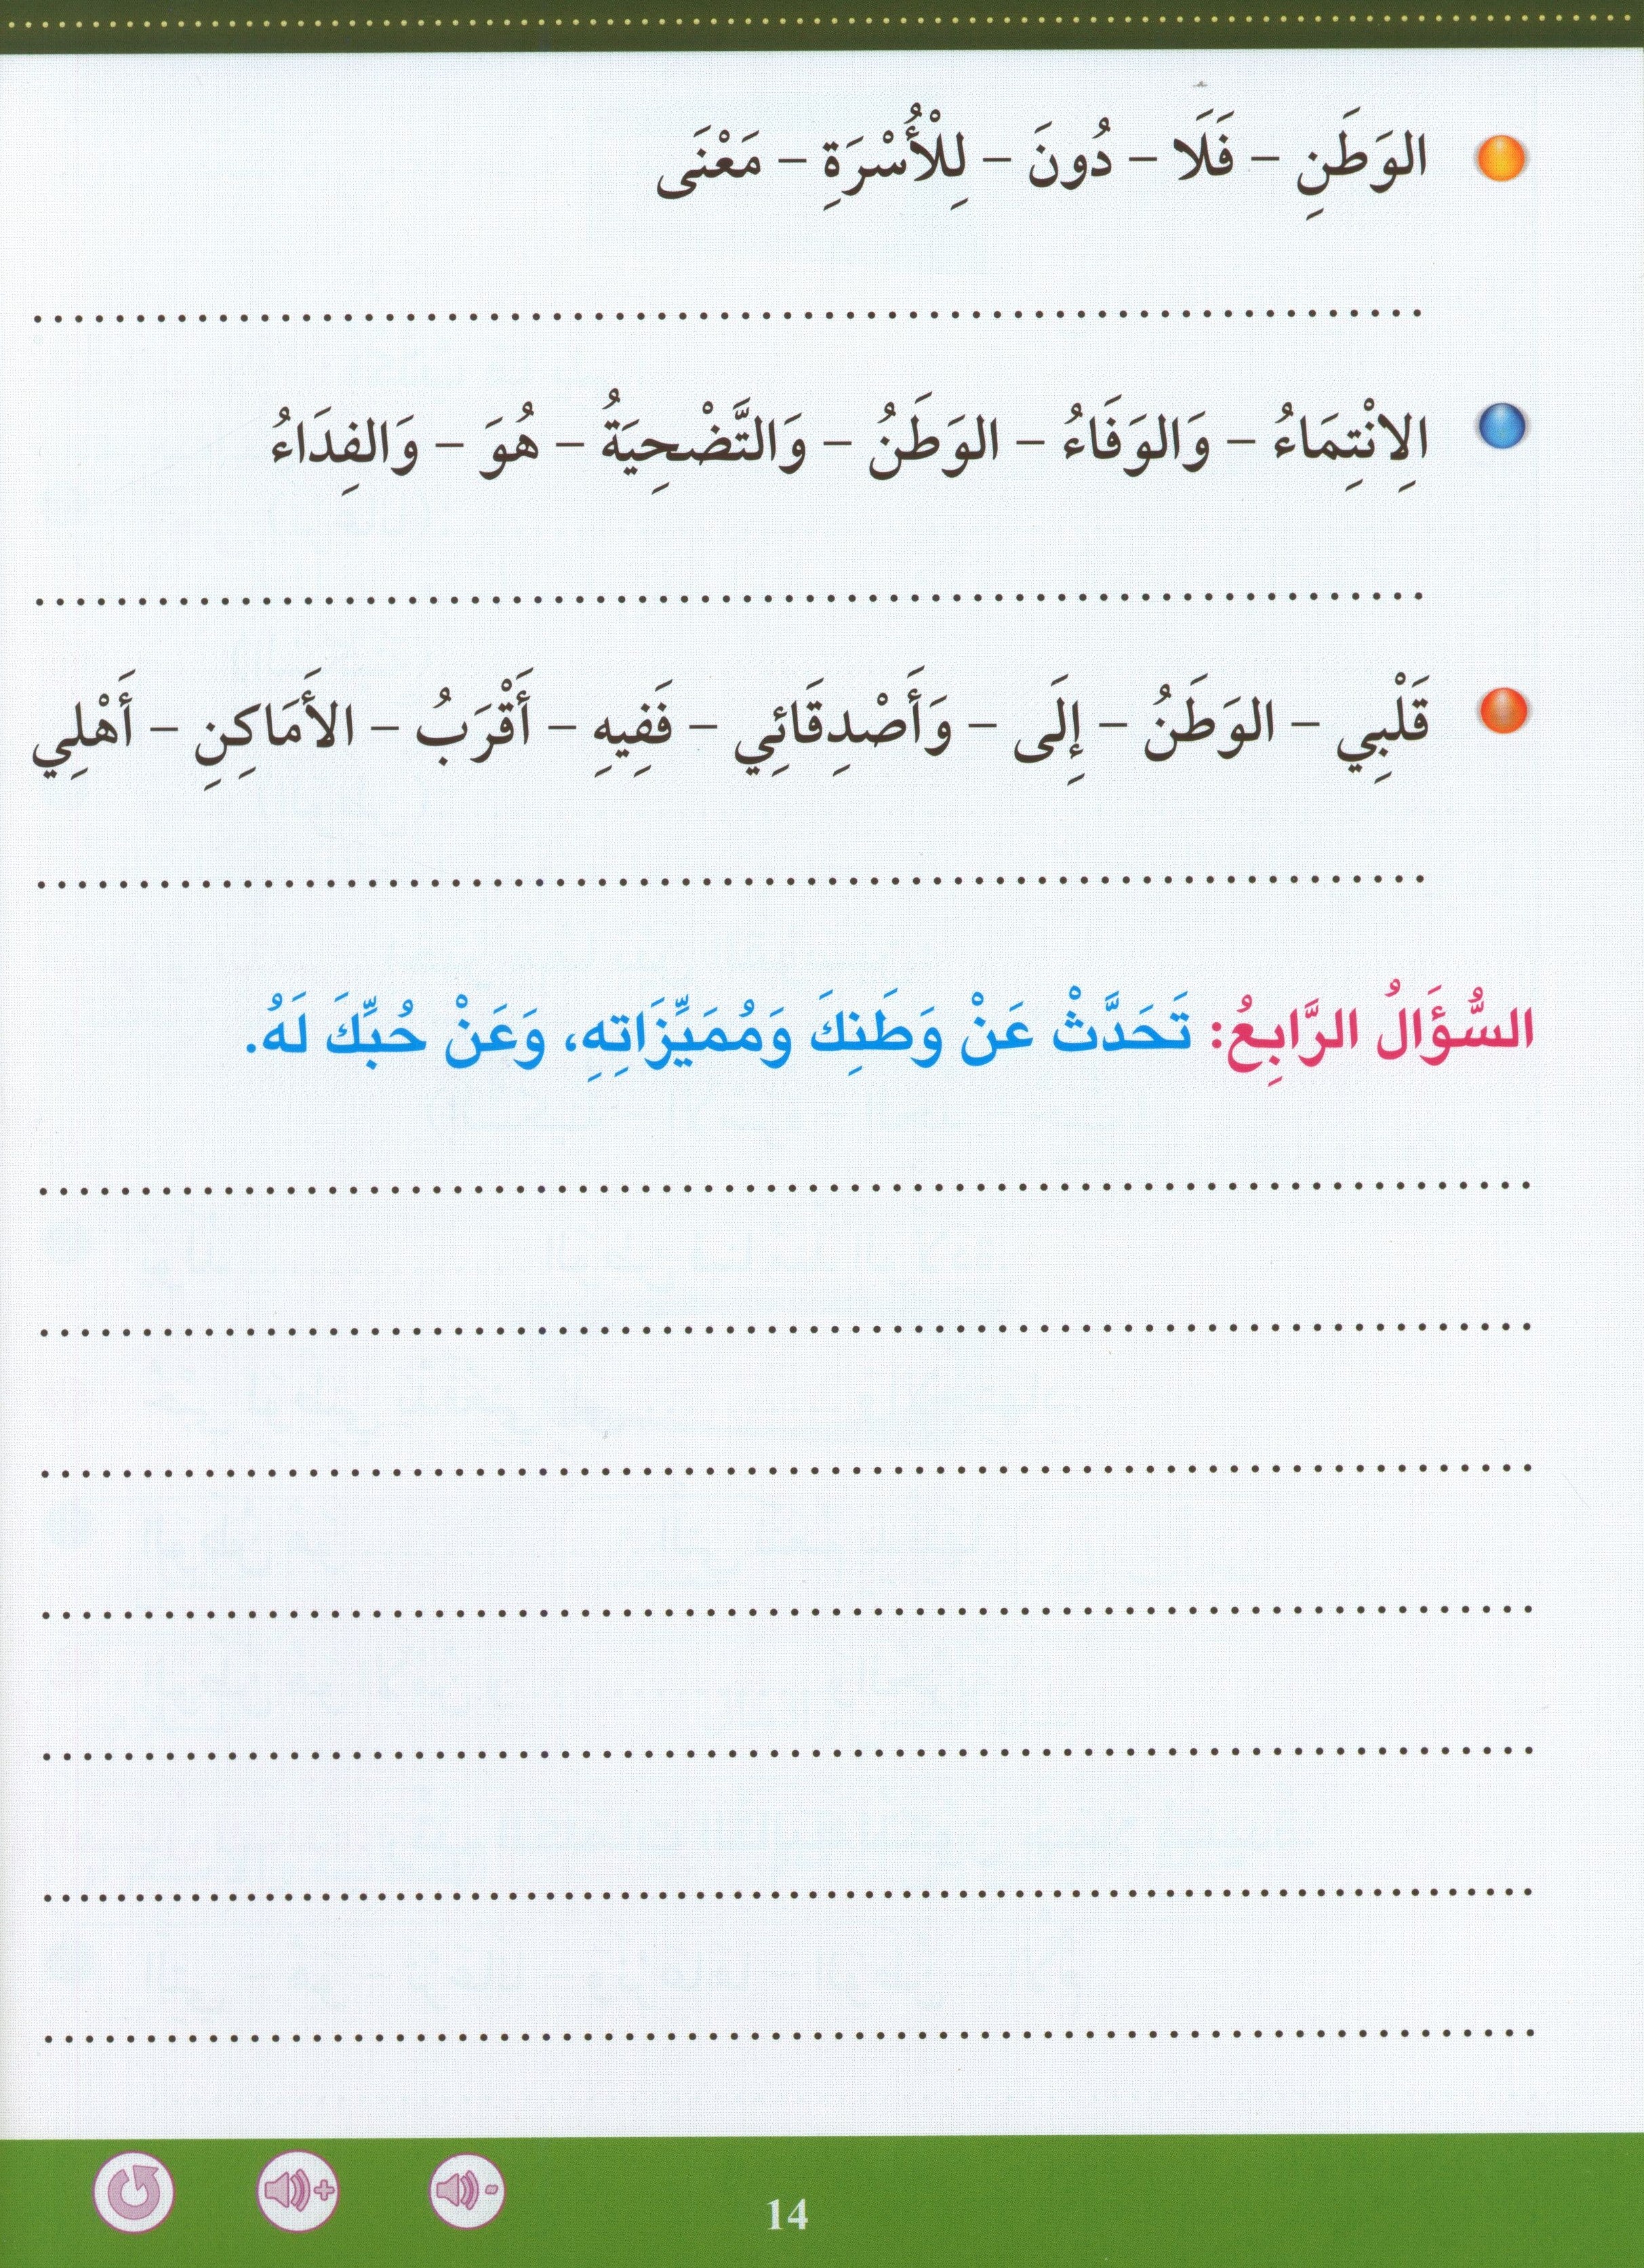 الوَطَنِ – فَلَا – دُونَ – لِلْأُسْرَةِ – مَعْنَى
الِانْتِمَاءُ – وَالوَفَاءُ – الوَطَنُ – وَالتَّضْحِيَةُ – هُوَ – وَالفِدَاءُ
قَلْبِي – الوَطَنُ – إِلَى – وَأَصْدِقَائِي – فَفِيهِ – أَقْرَبُ – الأَمَاكِنِ – أَهْلِي
السُّؤَالُ الرَّابِعُ: تَحَدَّثْ عَنْ وَطَنِكَ وَمُمَيِّزَاتِهِ، وَعَنْ حُبِّكَ لَهُ.
14